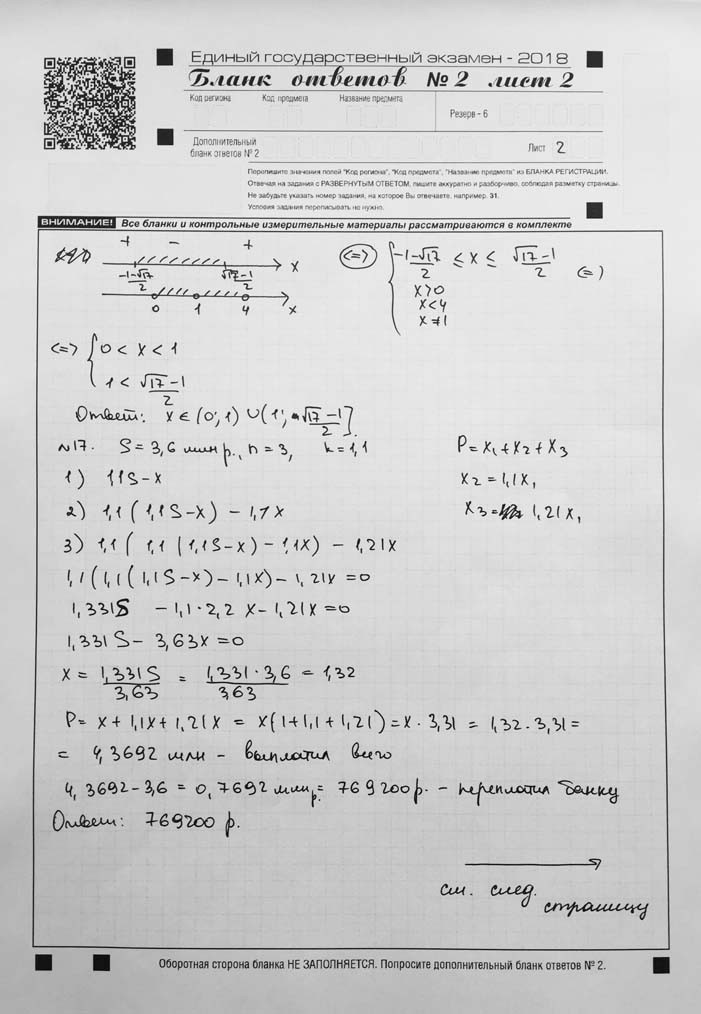 Единый государственный экзамен - 2018
Бланк ответов № 2 лист 2
Код региона Код предмета Название предмета
Резерв - 6
Дополнительный
бланк ответов № 2
Лист 2
Перепишите значения полей "Код региона", "Код предмета", "Название предмета" из БЛАНКА РЕГИСТРАЦИИ.
Отвечая на задания с РАЗВЕРНУТЫМ ОТВЕТОМ, пишите аккуратно и разборчиво, соблюдая разметку страницы.
Не забудьте указать номер задания, на которое Вы отвечаете, например, 31.
Условия задания переписывать не нужно.
ВНИМАНИЕ! Все бланки и контрольные измерительные материалы рассматриваются в комплекте
+ - +
(-1-√17)/2 (√17-1)/2 x
0 1 4 x
<=> { (-1-√17)/2 ≤ x ≤ (√17-1)/2 (=)
x>0
x<4
x≠1
<=> { 0 < x < 1
1 < (√17-1)/2
Ответ: x ∈ (0; 1) ∪ (1; (√17-1)/2].
№17. S = 3,6 млн р., n = 3, k = 1,1
P = x₁ + x₂ + x₃
x₂ = 1,1x₁
x₃ = 1,21x₁
1) 1,1S-x
2) 1,1 (1,1S-x) - 1,1x
3) 1,1 ( 1,1 (1,1S-x) - 1,1x) - 1,21x
1,1 (1,1 (1,1S-x) - 1,1x) - 1,21x = 0
1,331S - 1,1·2,2 x - 1,21x = 0
1,331S - 3,63x = 0
x = 1,331S/3,63 = 1,331·3,6/3,63 = 1,32
P = x + 1,1x + 1,21x = x(1+1,1+1,21) = x·3,31 = 1,32·3,31 =
= 4,3692 млн - выплатил всего
4,3692-3,6 = 0,7692 млн р. = 769200 р. - переплатил банку
Ответ: 769200 р.
см. след.
страницу
Оборотная сторона бланка НЕ ЗАПОЛНЯЕТСЯ. Попросите дополнительный бланк ответов № 2.